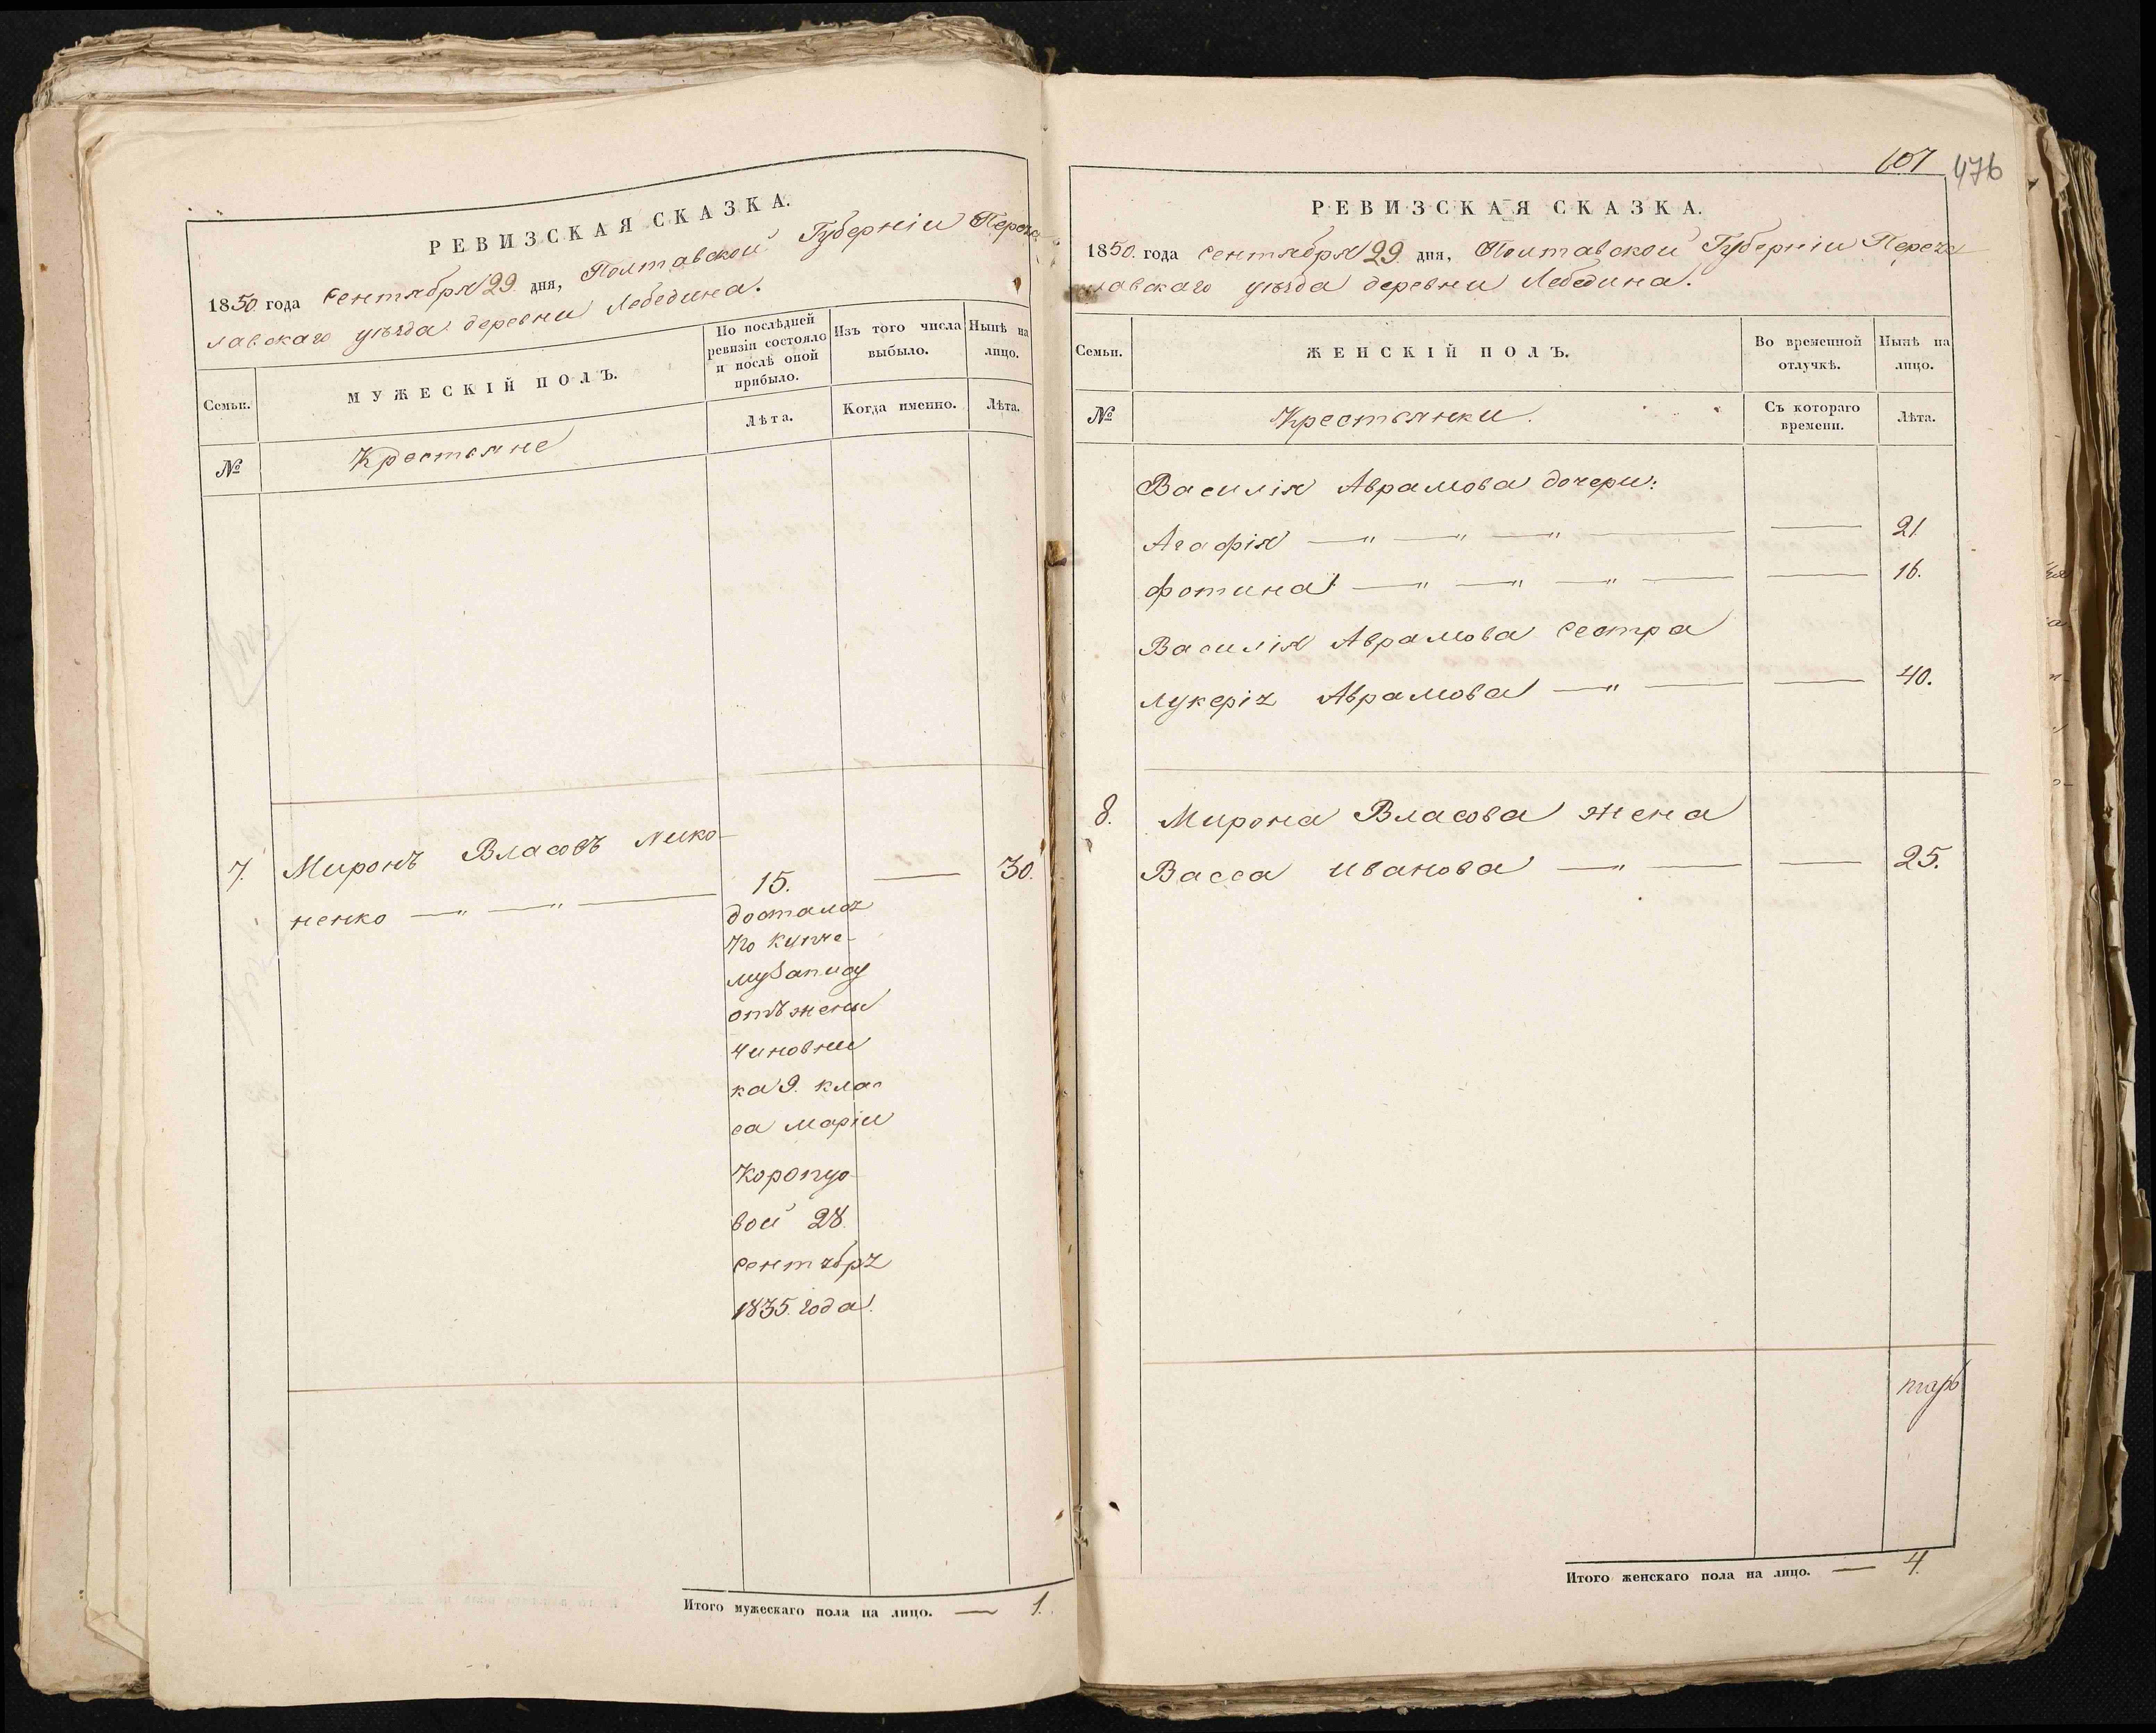 РЕВИЗСКАЯ СКАЗКА.
1850 года сентября 29 дня, Полтавской Губерніи Перея-
лавскаго уѣзда деревни Лебедина.
Семьи.
МУЖЕСКІЙ ПОЛЪ.
По послѣдней
ревизіи состояло
и послѣ оной
прибыло.
Изъ того числа
выбыло.
Нынѣ на
лицо.
№
Крестьяне
Лѣта.
Когда именно.
Лѣта.
7. Миронъ Власовъ Нико-
ненко — " — " — 15. — 30.
досталсz
по купче-
му запису
отъ жены
чиновни
ка 9. клас
са Маріи
вой 28
сентября
1835. года.
Итого мужескаго пола на лицо. — 1.
607 476
РЕВИЗСКАЯ СКАЗКА.
1850. года сентября 29 дня, Полтавской Губерніи Перея
лавскаго уѣзда деревни Лебедина.
Семьи.
ЖЕНСКІЙ ПОЛЪ.
Во временной
отлучкѣ.
Нынѣ на
лицо.
№
Крестьянки.
Съ котораго
времени.
Лѣта.
Василія Аврамова дочери:
Агафія — " — " — " — — 21
Фотина — " — " — " — — 16.
Василія Аврамова сестра
Лукерія Аврамова — " — — 40.
8. Мирона Власова жена
Васса Иванова — " — — 25.
Итого женскаго пола на лицо. — 4.